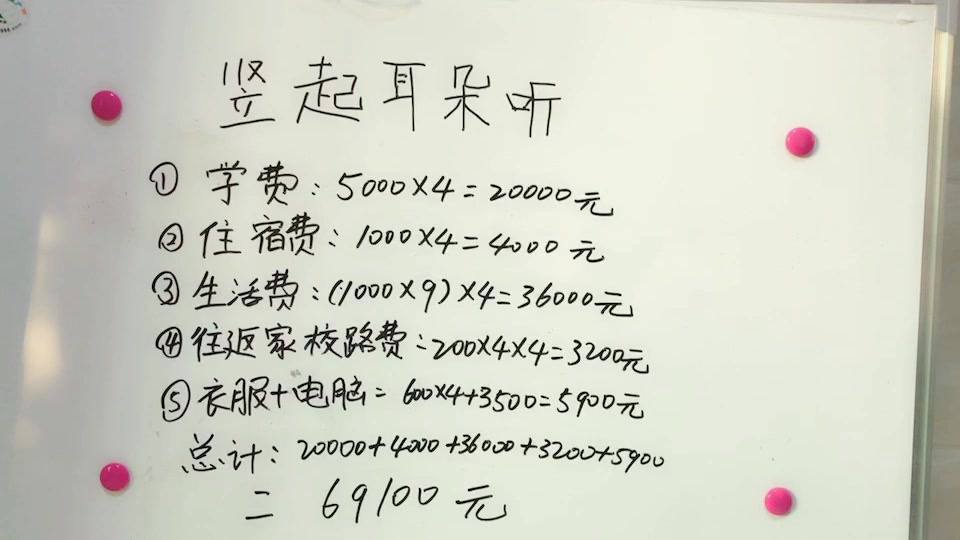 竖起耳朵听
① 学费：5000×4=20000元
② 住宿费：1000×4=4000元
③ 生活费：(1000×9)×4=36000元
④ 往返家校路费：200×4×4=3200元
⑤ 衣服+电脑=600×4+3500=5900元
总计：20000+4000+36000+3200+5900
= 69100元